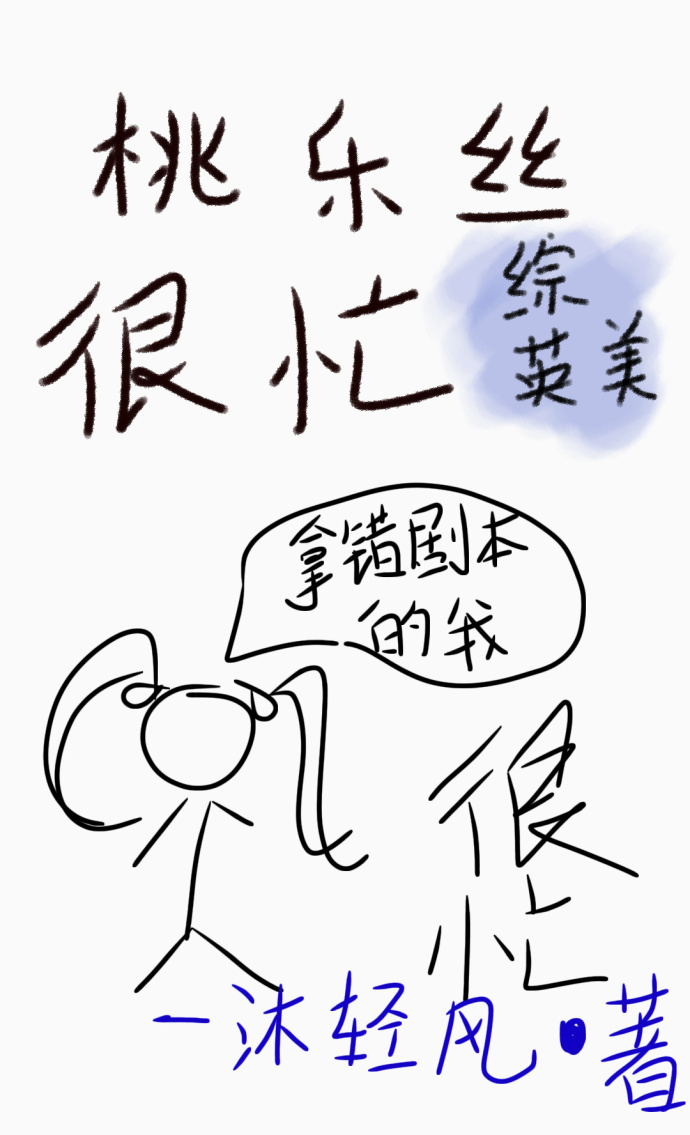 桃乐丝
很忙
综
英美
拿错剧本
的我
很
忙
一沐轻风·著